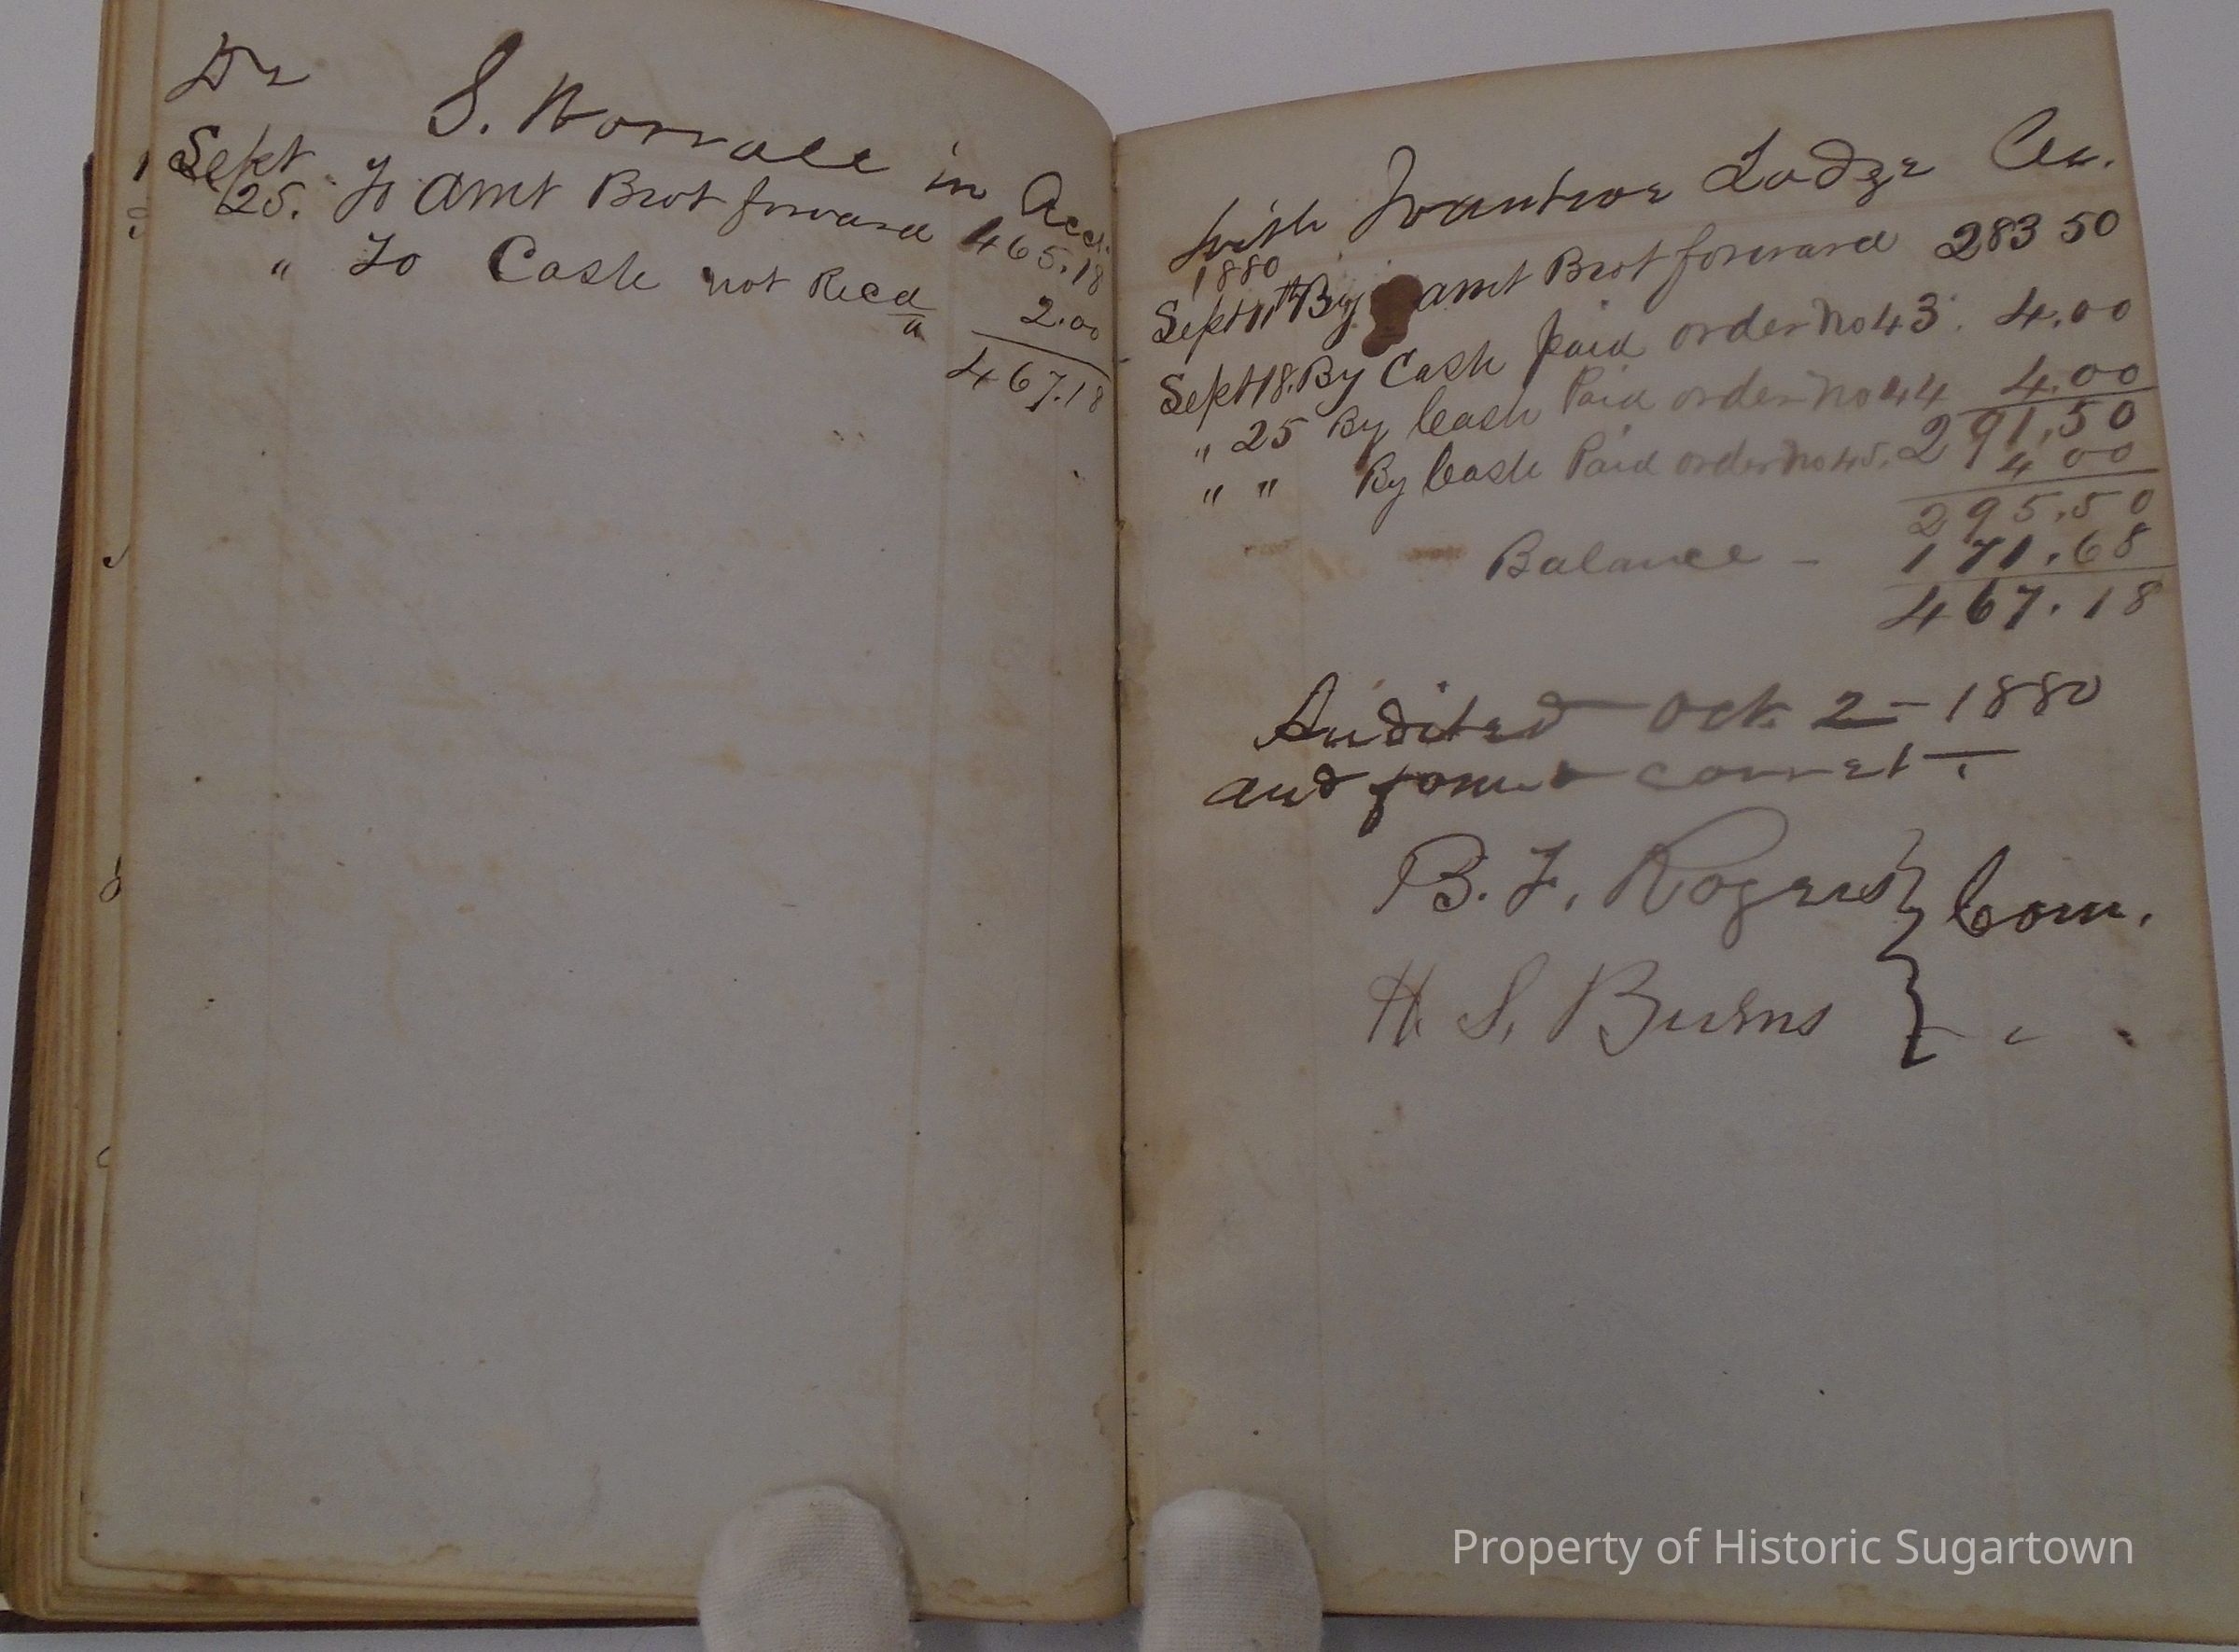 Dr
S. Worrall in Acct.
Sept
25. To Amt Brot forward 465.18
" To Cash not Recd 2.00
467.18
with Ivanhoe Lodge Cr.
1880
Sept 11th By amt Brot forward 283 50
Sept 18. By Cash paid order No 43. 4.00
" 25 By Cash Paid order No 44 4.00
291.50
" " By Cash Paid order No 45. 4 00
295.50
Balance - 171.68
467.18
Audited Oct. 2 - 1880
and found correct -
B. F. Rogers } Com.
H. S. Burns } "
Property of Historic Sugartown